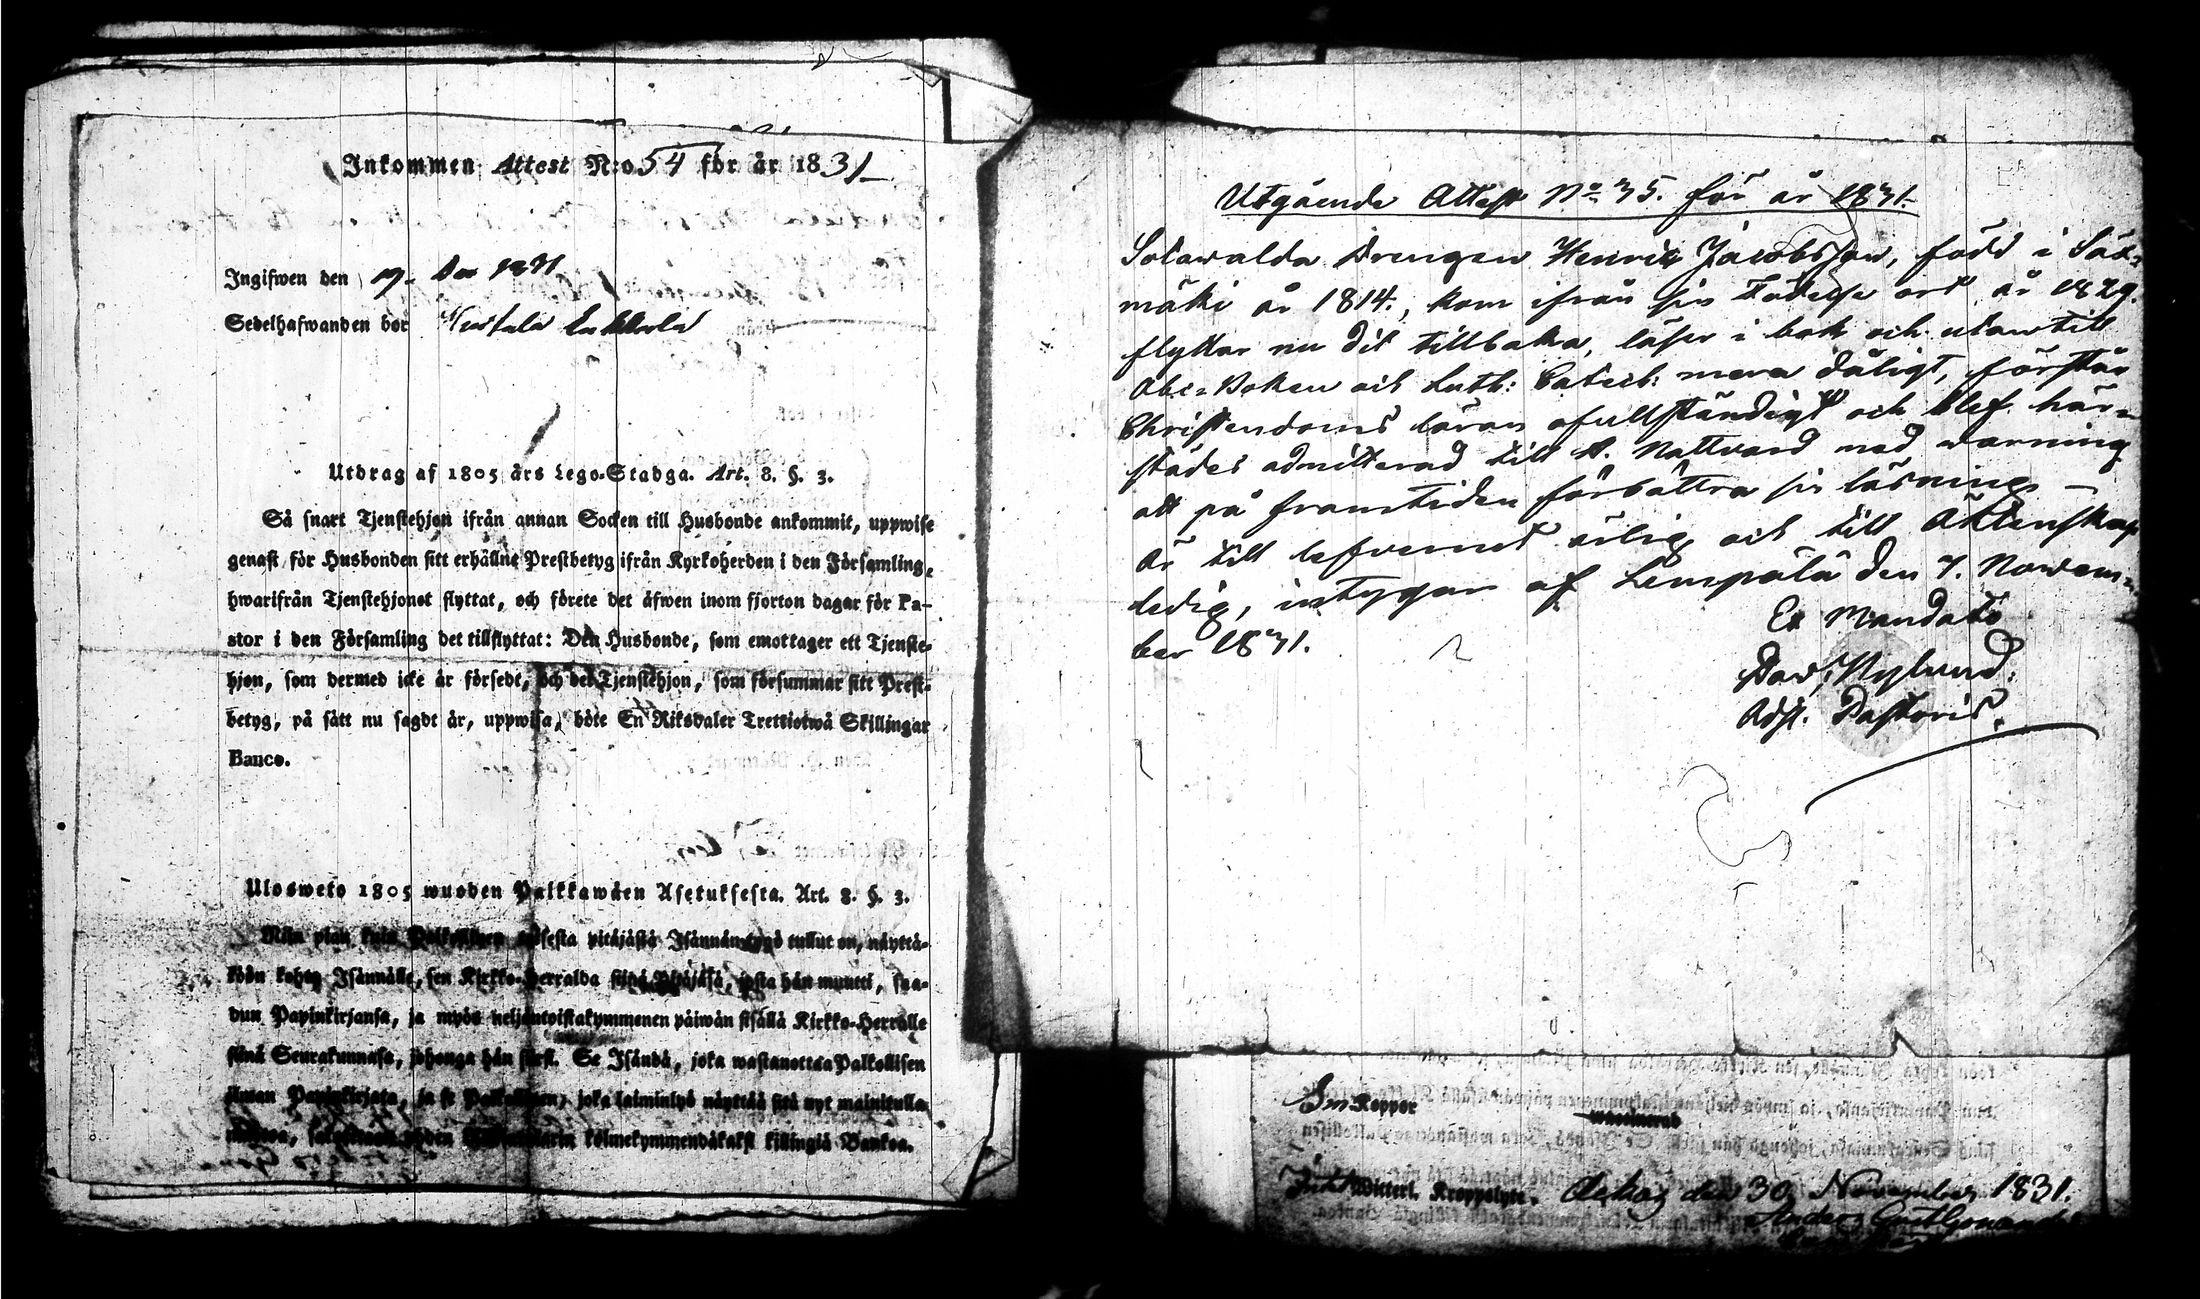 Inkommen Attest N:o 54 för år 1831
Ingifwen den 17. Dec 1831
Sedelhafwanden bor
Utdrag af 1805 års Lego-Stadga. Art. 8. §. 3.
Så snart Tjenstehjon ifrån annan Socken till Husbonde ankommit, uppwise
genast för Husbonden sitt erhållne Prestbetyg ifrån Kyrkoherden i den Församling,
hwarifrån Tjenstehjonet flyttat, och förete det äfwen inom fjorton dagar för Pa-
stor i den Församling det tillflyttat: Den Husbonde, som emottager ett Tjenste-
hjon, som dermed icke är försedt, och det Tjenstehjon, som försummar sitt Prest-
betyg, på sätt nu sagdt är, uppwisa, böte En Riksdaler Trettiotwå Skillingar
Banco.
Ulosweto 1805 wuoden Palkkawäen Asetuksesta. Art. 8. §. 3.
Niin pian kuin Palkollinen toisesta pitäjästä Isännän tygö tullut on, näyttä-
köön kohta Isännälle, sen Kirkko-Herralda siinä Pitäjäsä, josta hän muutti, saa-
dun Papinkirjansa, ja myös neljäntoistakymmenen päiwän sisällä Kirkko-Herralle
siinä Seurakunnasa, johonga hän siirsi. Se Isändä, joka wastanottaa Palkollisen
ilman Papinkirjata, ja se Palkollinen, joka laiminlyö näyttää sitä nyt mainitulla
kolmekymmendäkaksi killingiä Bankoa.
Utgående Attest No 35. för år 1831.
Sotawalda Drengen Henric Jacobsson, född i Sää=
mäki år 1814, kom ifrån sin Födelse ort år 1829.
flyttar nu dit tillbaka, läser i bok och utantill
Abc=Boken och Luth: Catech: mera dåligt, förstår
Christendoms läran ofullständigt och blef här=
städes admitterad till H. Nattvard med warning
att på framtiden förbättra sin läsning –
Är till lefvernet ärlig och till Äktenskap
ledig, intygar af Lempälä den 7. Novem=
ber 1831.
Ex Mandato
Dav. Nylund.
Adj. Pastoris.
Koppor
vaccinerad
Witterl. Kroppslyte. den 30 November 1831.
Anders Gust